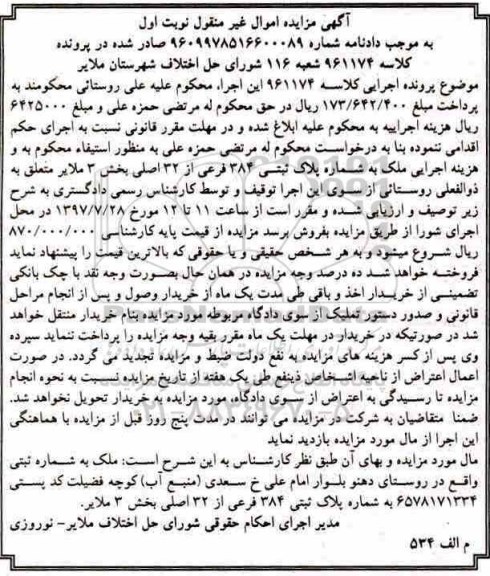 آگهی مزایده اموال غیر منقول نوبت اول
به موجب دادنامه شماره ۹۶۰۹۹۷۸۵۱۶۶۰۰۰۸۹ صادر شده در پرونده
کلاسه ۹۶۱۱۷۴ شعبه ۱۱۶ شورای حل اختلاف شهرستان ملایر
موضوع پرونده اجرایی کلاسه ۹۶۱۱۷۴ این اجرا، محکوم علیه علی روستائی محکومند به
پرداخت مبلغ ۱۷۳/۶۴۲/۴۰۰ ریال در حق محکوم له مرتضی حمزه علی و مبلغ ۶۴۲۵۰۰۰
ریال هزینه اجراییه به محکوم علیه ابلاغ شده و در مهلت مقرر قانونی نسبت به اجرای حکم
اقدامی ننموده بنا به درخواست محکوم له مرتضی حمزه علی به منظور استیفاء محکوم به و
هزینه اجرایی ملک به شماره پلاک ثبتی ۳۸۴ فرعی از ۳۲ اصلی بخش ۳ ملایر متعلق به
ذوالفعلی روستائی از سوی این اجرا توقیف و توسط کارشناس رسمی دادگستری به شرح
زیر توصیف و ارزیابی شده و مقرر است از ساعت ۱۱ تا ۱۲ مورخ ۱۳۹۷/۷/۲۸ در محل
اجرای شورا از طریق مزایده بفروش برسد مزایده از قیمت پایه کارشناسی ۸۷۰/۰۰۰/۰۰۰
ریال شروع میشود و به هر شخص حقیقی و یا حقوقی که بالاترین قیمت را پیشنهاد نماید
فروخته خواهد شد ده درصد وجه مزایده در همان حال بصورت وجه نقد با چک بانکی
تضمینی از خریدار اخذ و باقی طی مدت یک ماه از خریدار وصول و پس از انجام مراحل
قانونی و صدور دستور تملیک از سوی دادگاه مربوطه مورد مزایده بنام خریدار منتقل خواهد
شد در صورتیکه در خریدار در مهلت یک ماه مقرر بقیه وجه مزایده را پرداخت ننماید سپرده
وی پس از کسر هزینه های مزایده به نفع دولت ضبط و مزایده تجدید می گردد. در صورت
اعمال اعتراض از ناحیه اشخاص ذینفع طی یک هفته از تاریخ مزایده نسبت به نحوه انجام
مزایده تا رسیدگی به اعتراض از سوی دادگاه، مورد مزایده به خریدار تحویل نخواهد شد.
ضمنا متقاضیان به شرکت در مزایده می توانند در مدت پنج روز قبل از مزایده با هماهنگی
این اجرا از مال مورد مزایده بازدید نماید
مال مورد مزایده و بهای آن طبق نظر کارشناس به این شرح است: ملک به شماره ثبتی
واقع در روستای دهنو بلوار امام علی خ سعدی (منبع آب) کوچه فضیلت کد پستی
۶۵۷۸۱۷۱۳۳۴ به شماره پلاک ثبتی ۳۸۴ فرعی از ۳۲ اصلی بخش ۳ ملایر.
مدیر اجرای احکام حقوقی شورای حل اختلاف ملایر- نوروزی
م الف ۵۳۴